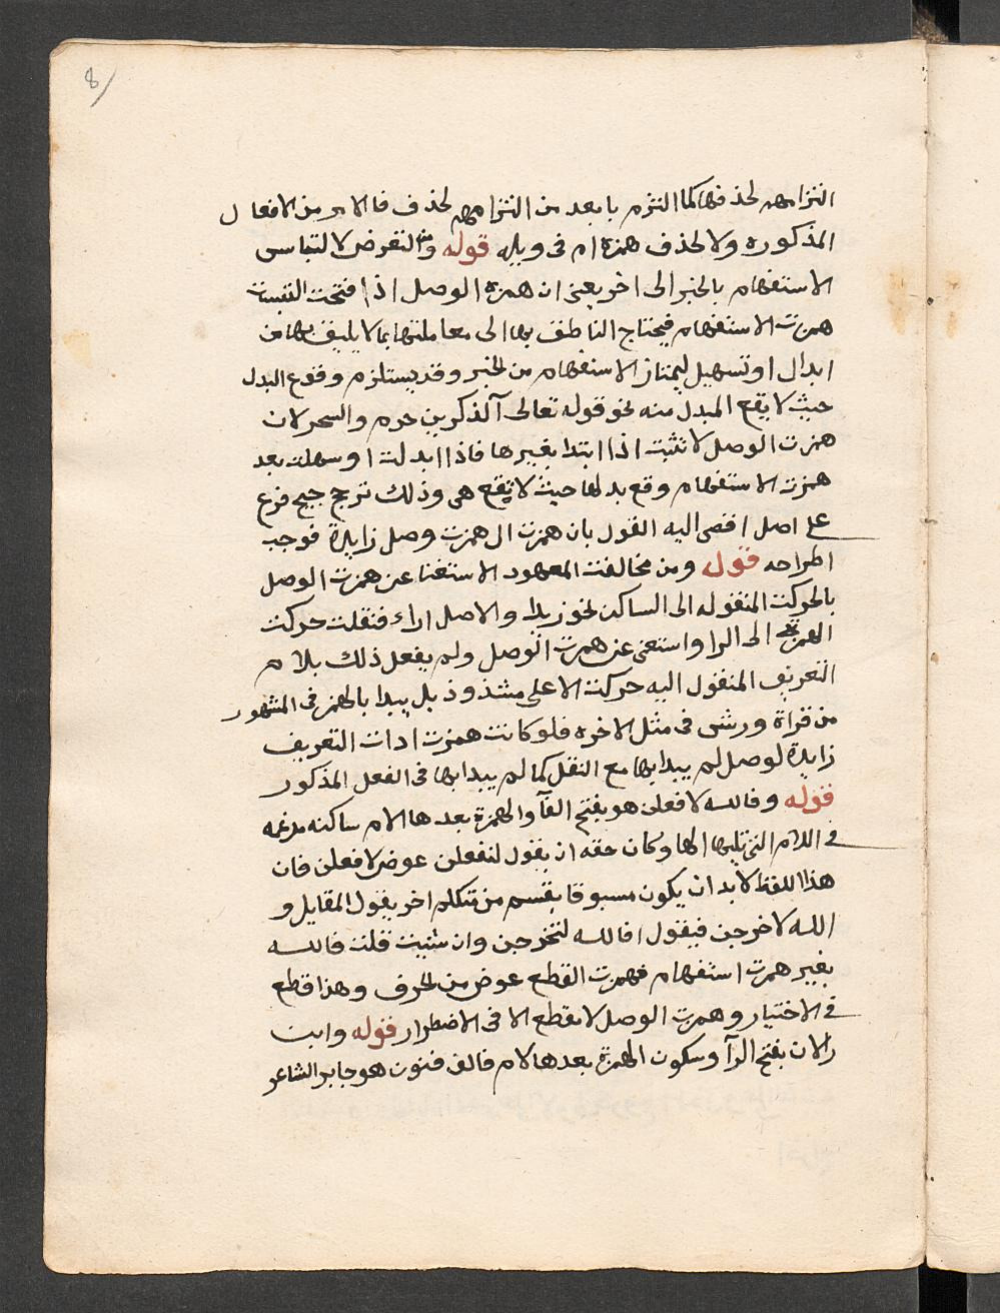 8
التزامهم لحذفها كما التزم بابعد من التزامهم لحذف فا الامر من الافعال
المذكوره ولا لحذف همزة ام في ويله قوله والتعرض لالتباس
الاستفهام بالخبر الى اخر يعني ان همزه الوصل اذا فتحت التبست
همزت الاستفهام فيحتاج الناطق بها الى معاملتها بما لا يليق بها من
ابدال او تسهيل ليمتاز الاستفهام من الخبر وقد يستلزم وقوع البدل
حيث لا يقع المبدل منه نحو قوله تعالى آلذكرين حرم والسحر لان
همزت الوصل لا تثبت اذا ابتدا بغيرها فاذا ابدلت او سهلت بعد
همزت الاستفهام وقع بدلها حيث لا تقع هي وذلك ترجيح فرع
على اصل افضى اليه القول بان همزت ال همزت وصل زايدة فوجب
اطراحه قوله ومن مخالفت المعهود الاستغنا عن همزت الوصل
بالحركت المنقوله الى الساكن نحو ريدا والاصل اراء فنقلت حركت
الهمزة الى الرا واستغنى عن همزت الوصل ولم يفعل ذلك بلام
التعريف المنقول اليه حركت الا على شذوذ بل يبدا بالهمز في المشهور
من قراة ورش في مثل الاخره فلو كانت همزت ادات التعريف
زايدة لوصل لم يبدا بها مع النقل كما لم يبدا بها في الفعل المذكور
قوله وفالله لافعلن هو بفتح الفآ والهمزة بعدها الام ساكنه مدغمه
في اللام التي تليها الها وكان حقه ان يقول لتفعلن عوض لافعلن فان
هذا اللفظ لا بد ان يكون مسبوقا بقسم من متكلم اخر يقول المقايل و
الله لاخرجن فيقول افالله لتخرجن وان شئت قلت فالله
بغير همزت استفهام فهمزت القطع عوض من الحرف وهذا قطع
في الاختيار وهمزت الوصل لا تقطع الا في الاضطرار قوله وابن
رالان بفتح الرآ وسكون الهمزة بعدها لام فالف فنون هو جابر الشاعر